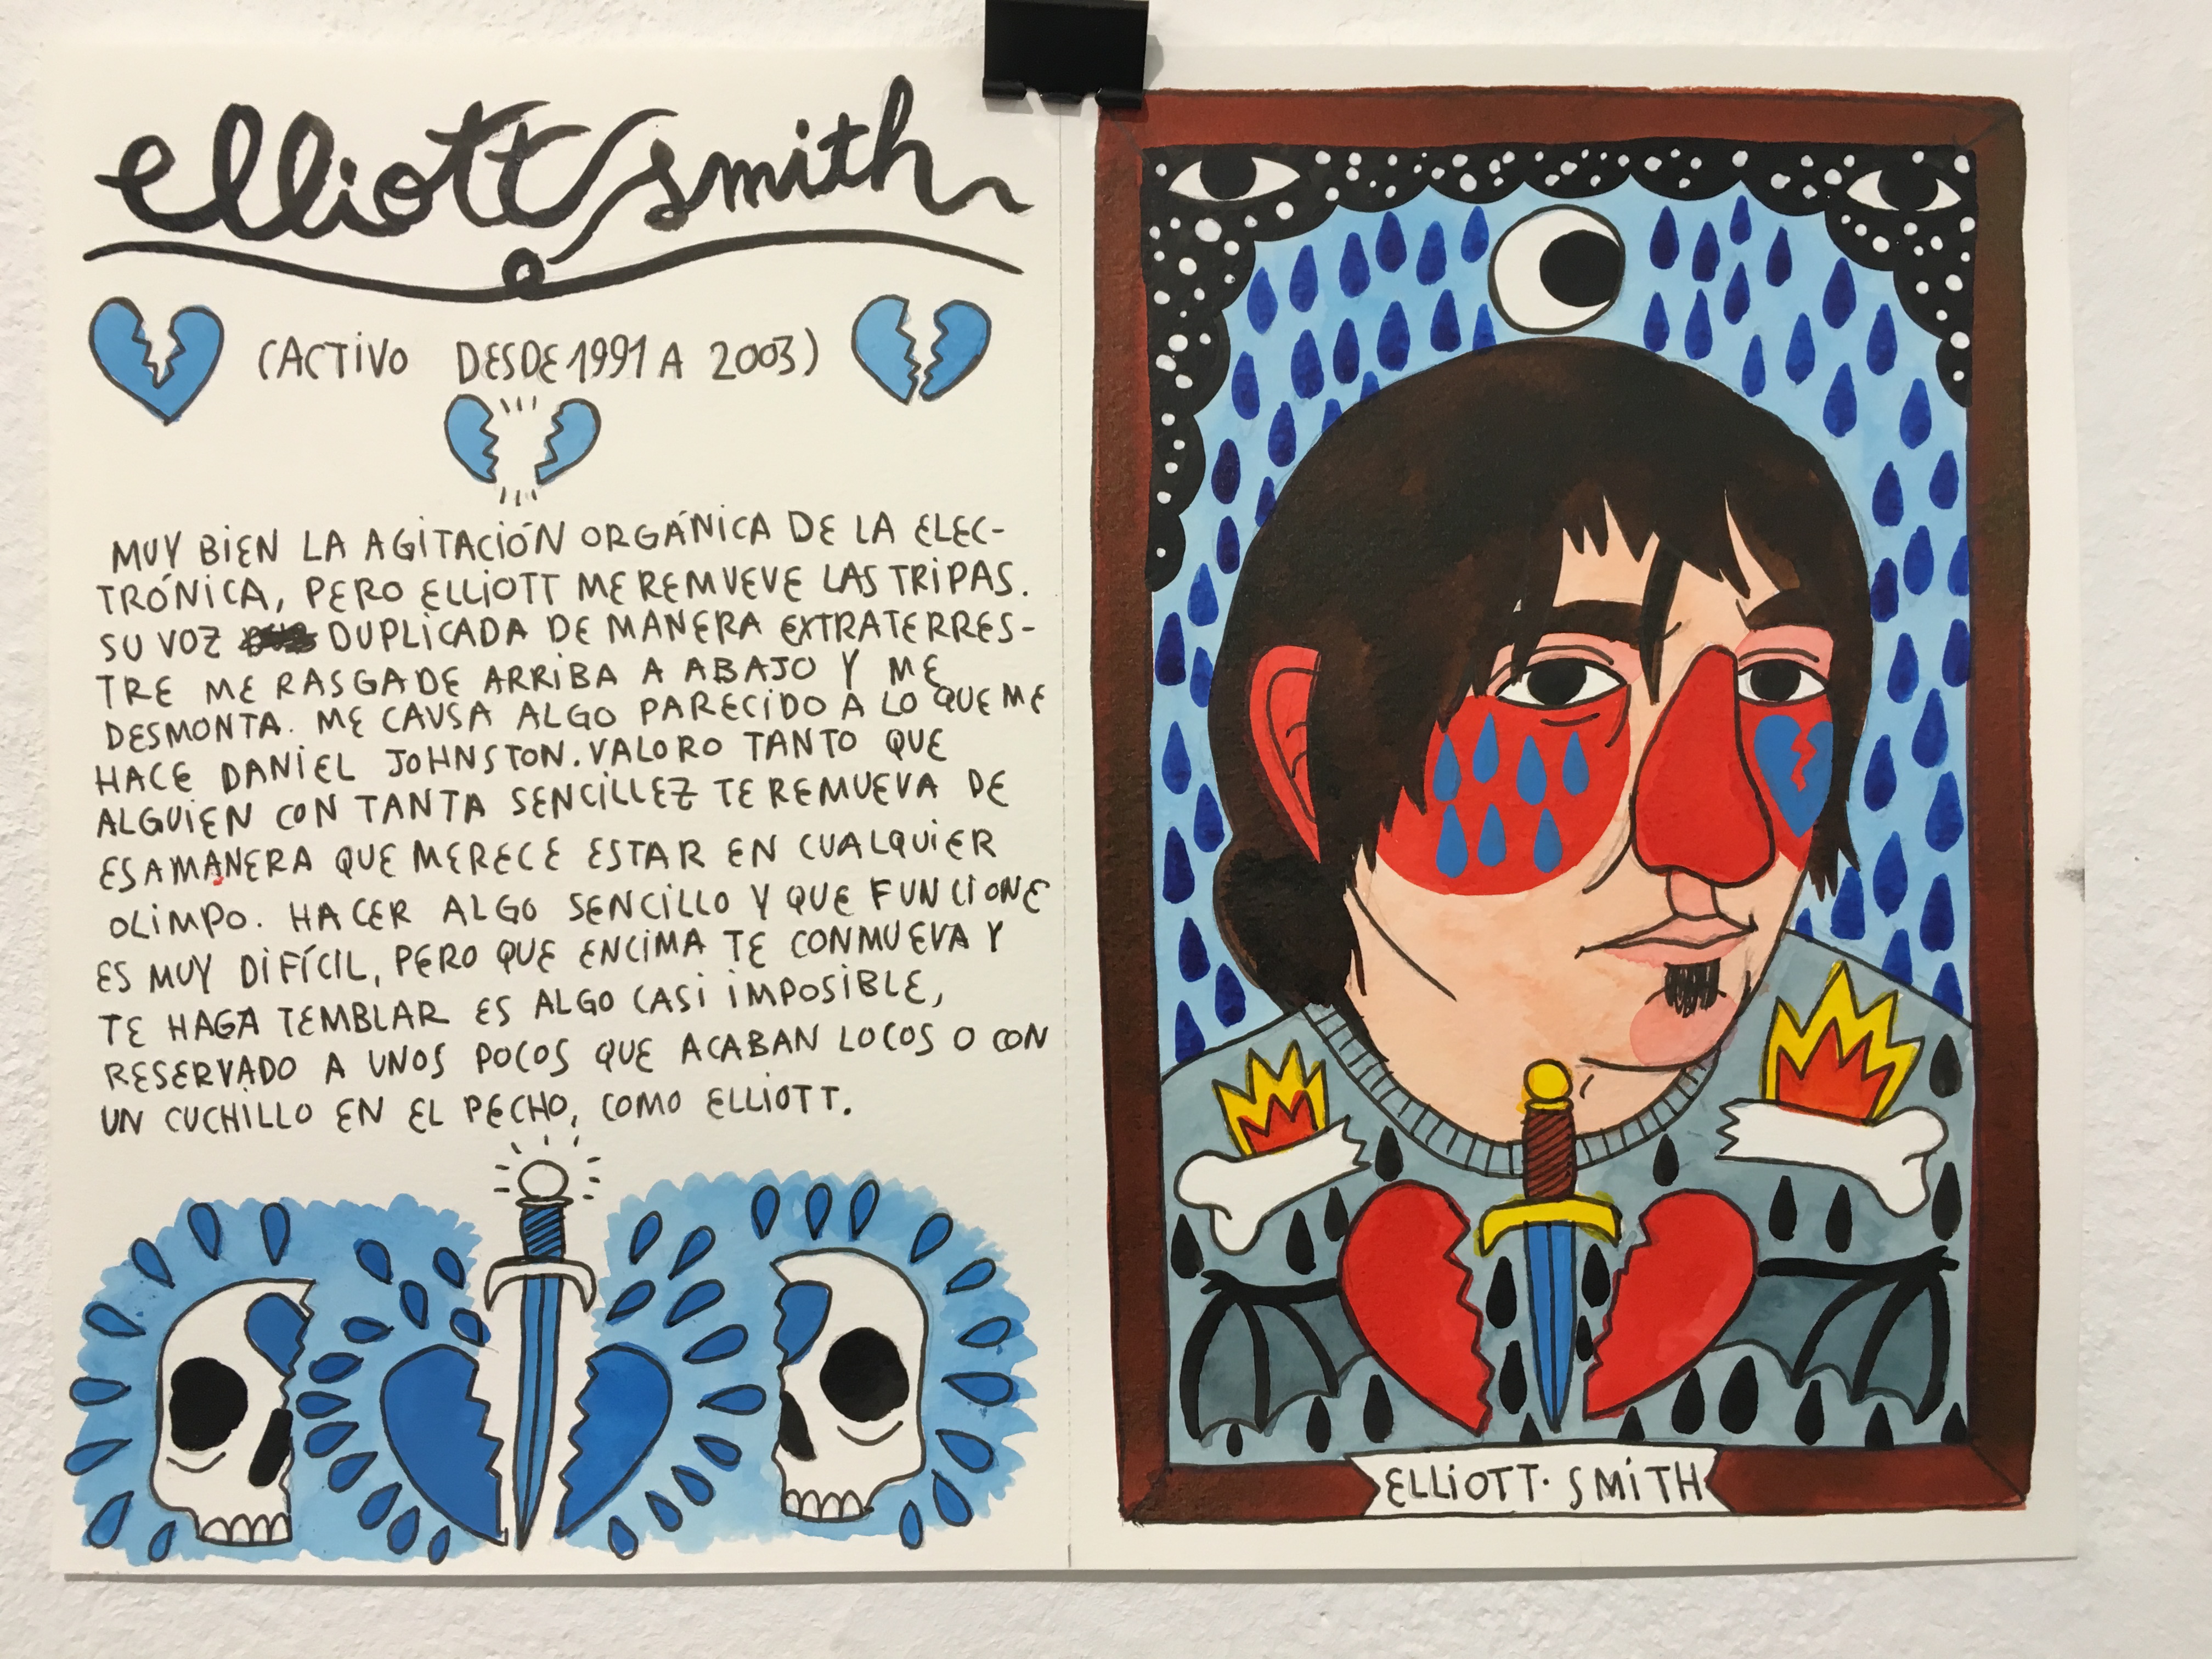 elliott smith
(ACTIVO DESDE 1991 A 2003)
MUY BIEN LA AGITACIÓN ORGÁNICA DE LA ELEC-
TRÓNICA, PERO ELLIOTT ME REMUEVE LAS TRIPAS.
SU VOZ DUPLICADA DE MANERA EXTRATERRES-
TRE ME RASGA DE ARRIBA A ABAJO Y ME
DESMONTA. ME CAUSA ALGO PARECIDO A LO QUE ME
HACE DANIEL JOHNSTON. VALORO TANTO QUE
ALGUIEN CON TANTA SENCILLEZ TE REMUEVA DE
ESA MANERA QUE MERECE ESTAR EN CUALQUIER
OLIMPO. HACER ALGO SENCILLO Y QUE FUNCIONE
ES MUY DIFÍCIL, PERO QUE ENCIMA TE CONMUEVA Y
TE HAGA TEMBLAR ES ALGO CASI IMPOSIBLE,
RESERVADO A UNOS POCOS QUE ACABAN LOCOS O CON
UN CUCHILLO EN EL PECHO, COMO ELLIOTT.
ELLIOTT · SMITH